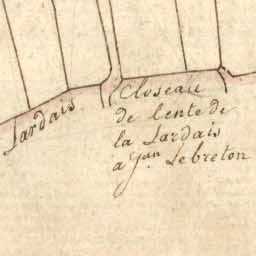 Jardais
Closeau
de l'ente de
la Jardais
a Jan Lebreton